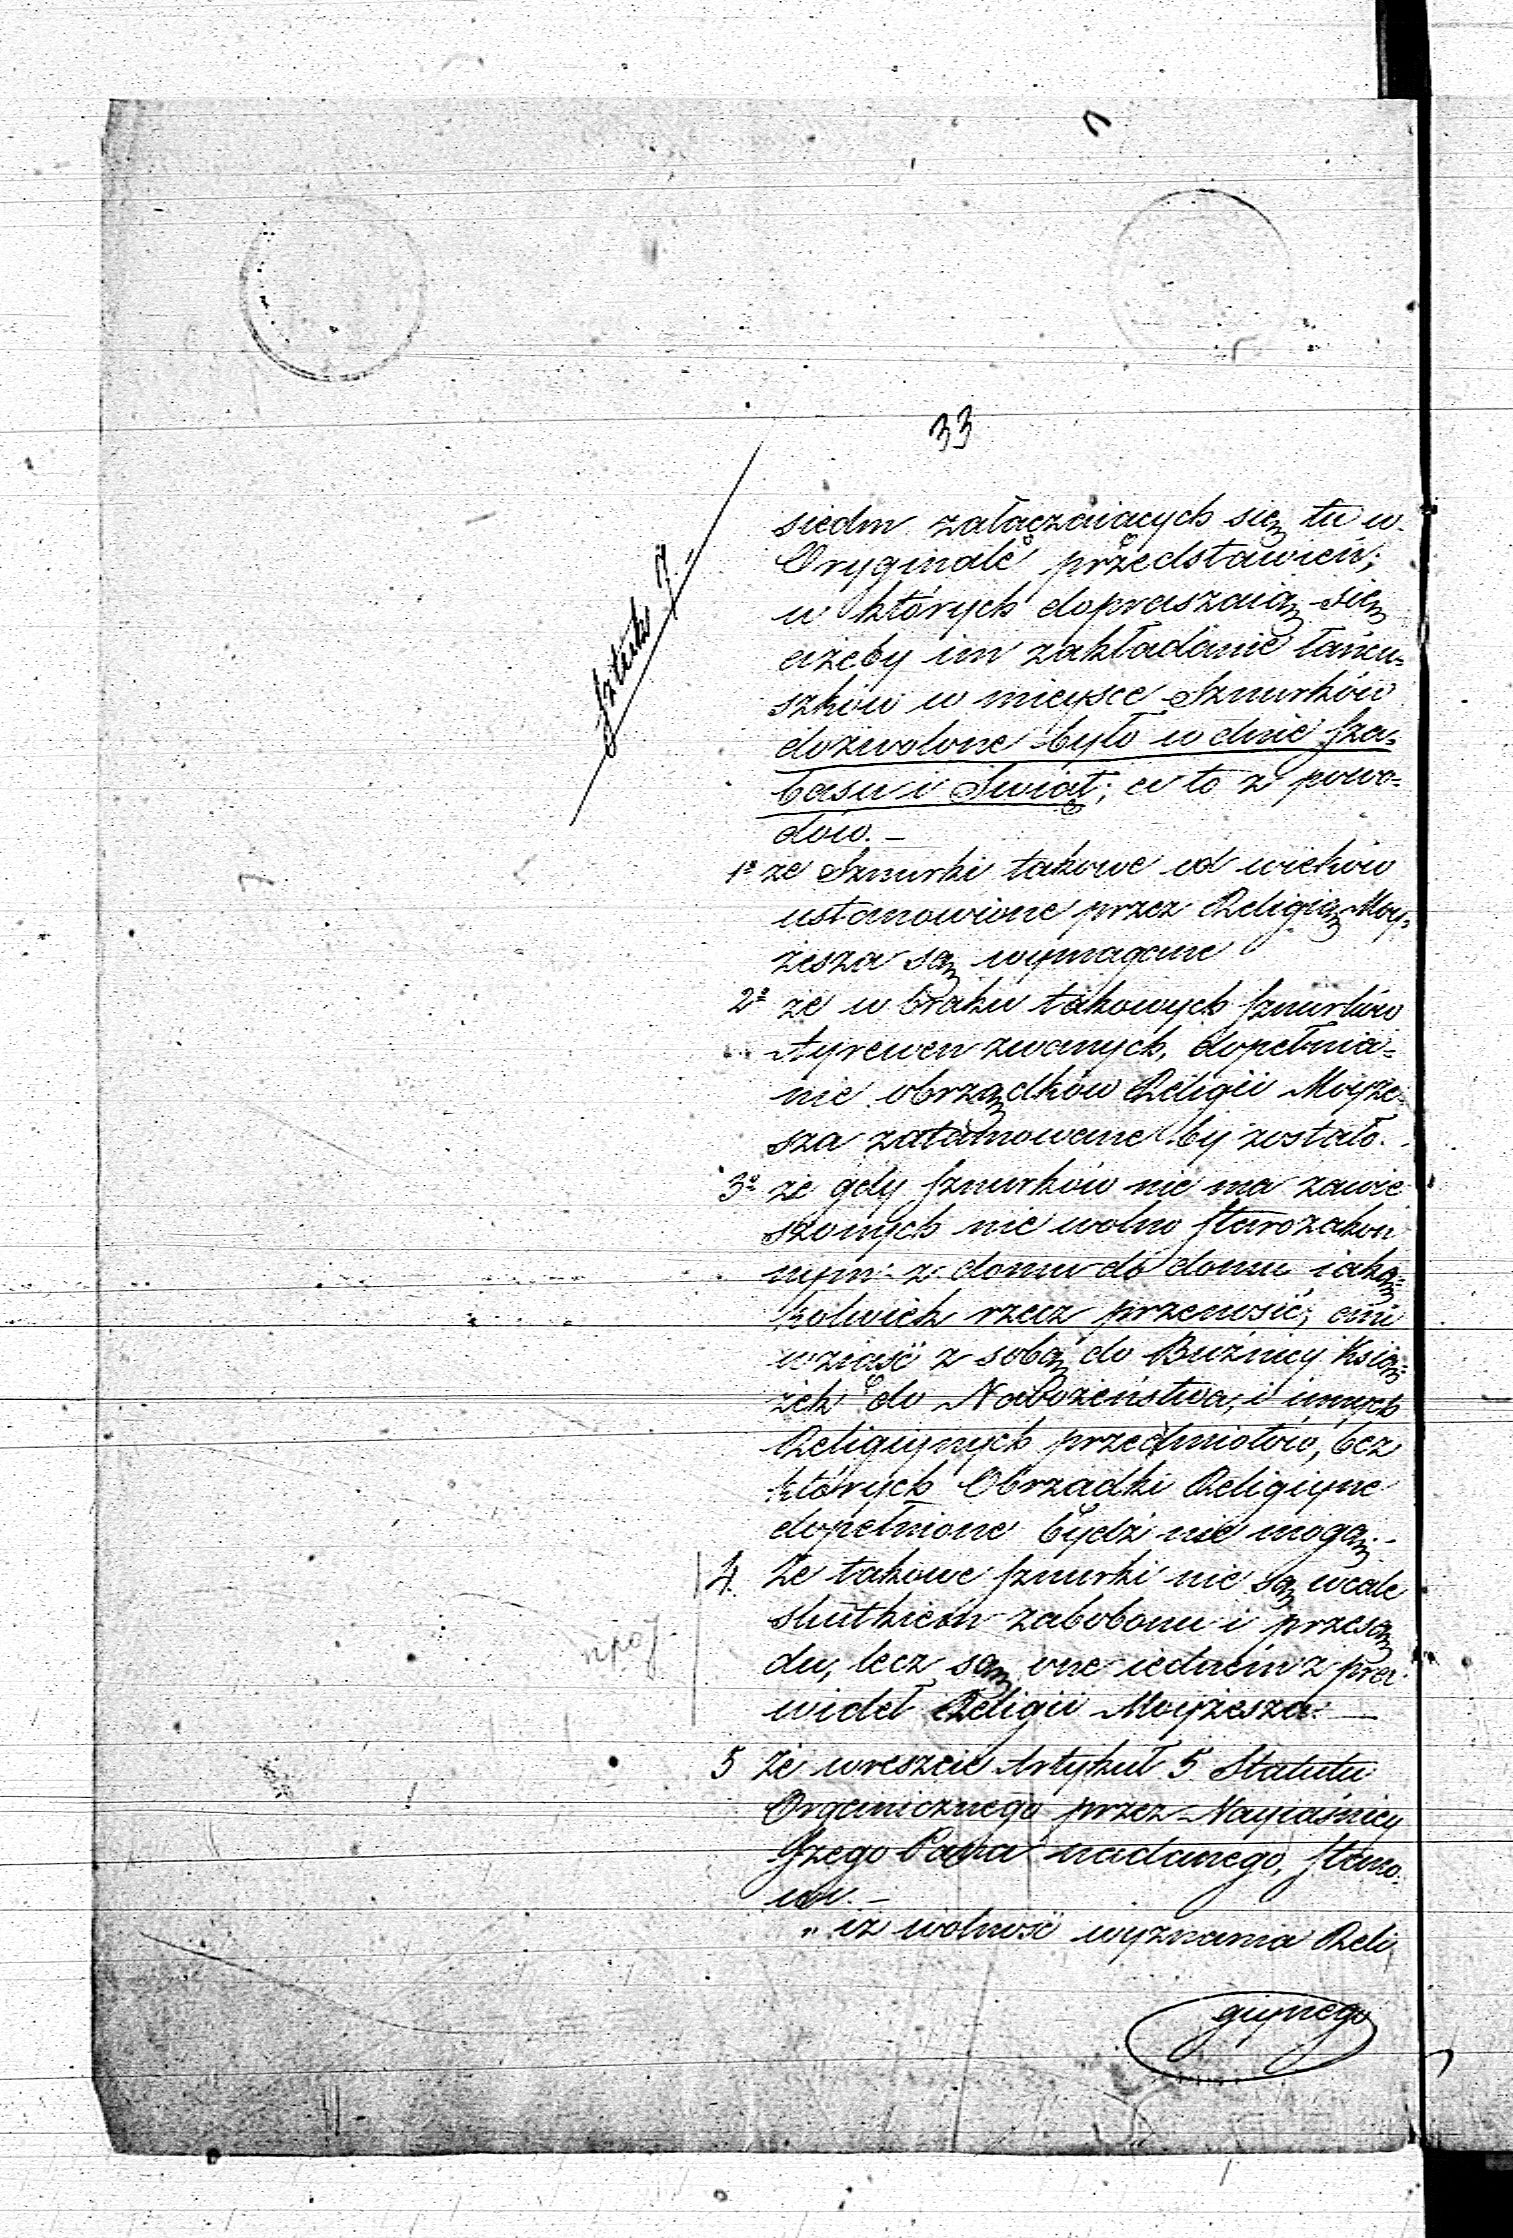 33
Sztuk 7.
siedm załączaiących się tu w
Oryginale przedstawień,
w których dopraszaią się
ażeby im zakładanie łańcu=
szków w mieysce Sznurków
dozwolone było w dnie Sza=
basu i Swiąt; a to z powo=
dów. —
1º że Sznurki takowe od wieków
ustanowione przez Religią Moy=
żesza są wymagane
2º że w braku takowych Sznurków
Ayrewen zwanych, dopełnia=
nie obrządków Religii Moyże=
sza zatamowane by zostało.
3º że gdy Sznurków nie ma zawie
szonych nie wolno Starozakon
nym z domu do domu iaką=
kolwiek rzecz przenosić, ani
wziąść z sobą do Bużnicy Ksią=
żek do Nabożeństwa, i innych
Religiynych przedmiotów, bez
których Obrządki Religiyne
dopełnione bydź nie mogą. —
4. Że takowe Sznurki nie są wcale
skutkiem zabobonu i przesą
du, lecz są one iednem z pra
wideł Religii Moyżesza. —
5 Że wreszcie Artykuł 5 Statutu
Organicznego przez Nayiaśniey
Szego Pana nadanego, Stano=
wi. —
„ iż wolność wyznania Reli
giynego